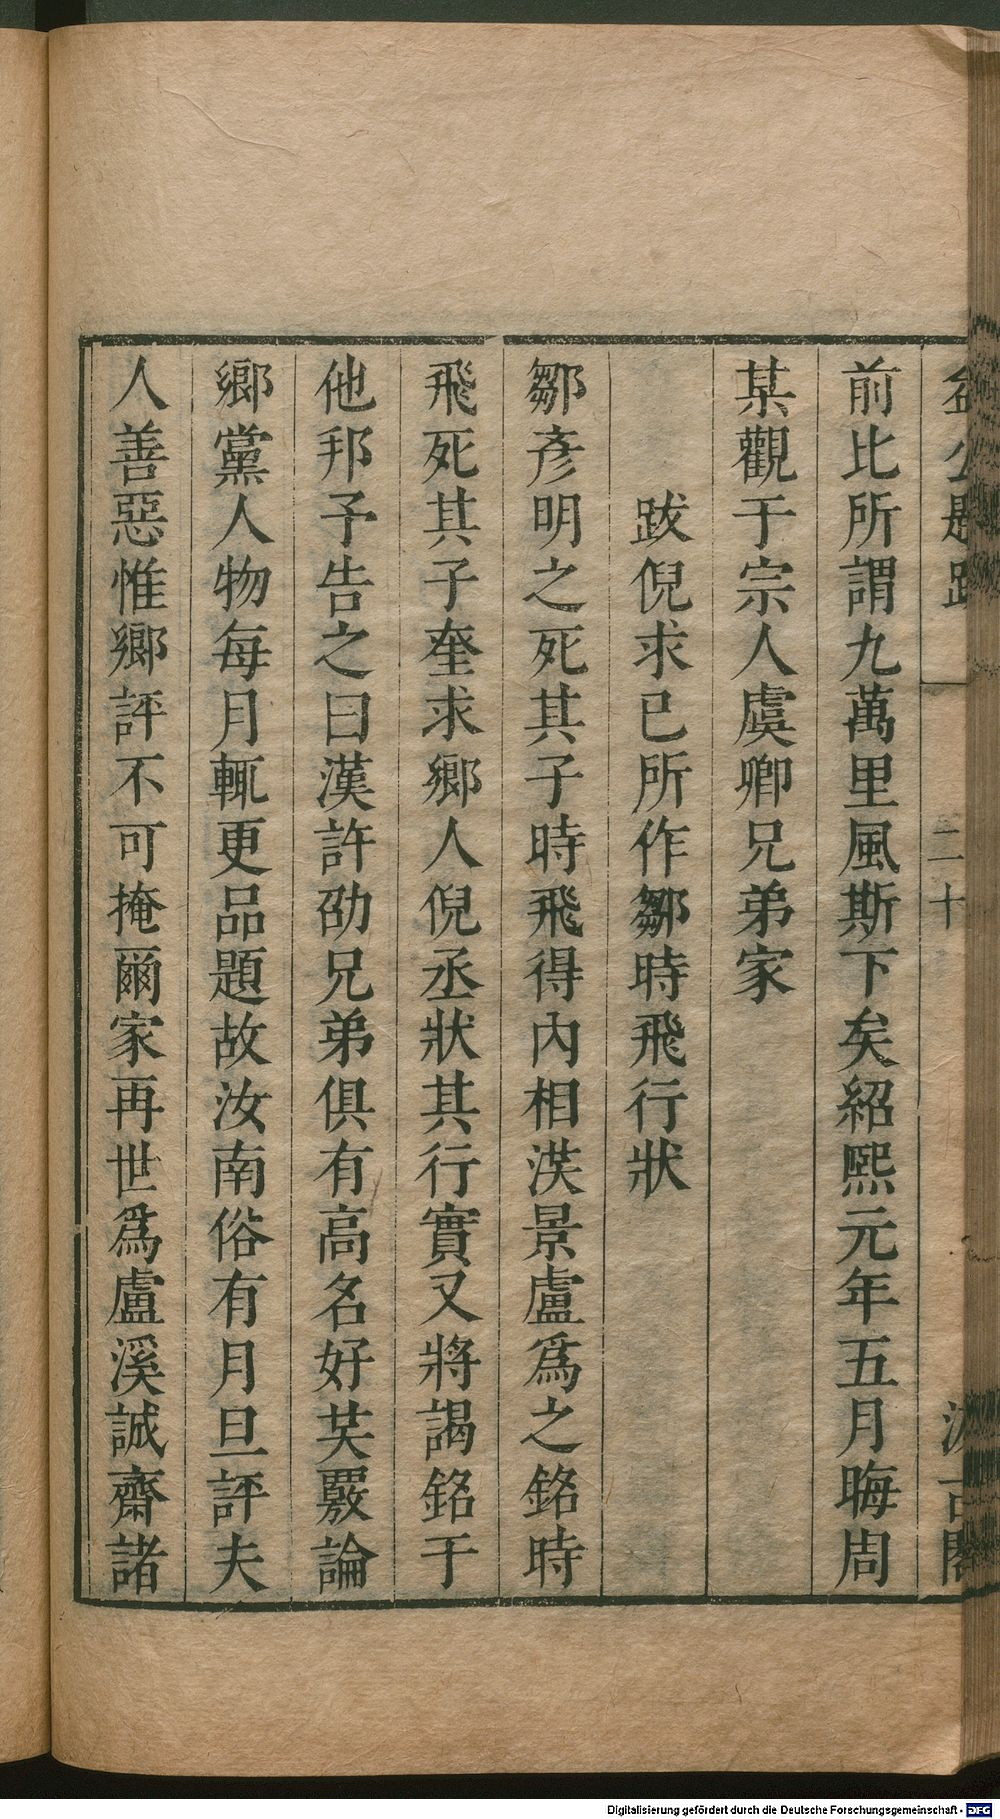 益公題跋 二十 汲古閣
前比所謂九萬里風斯下矣紹熙元年五月晦周
某觀于宗人虞卿兄弟家
跋倪求已所作鄒時飛行狀
鄒彥明之死其子時飛得內相洪景盧爲之銘時
飛死其子奎求鄉人倪丞狀其行實又將謁銘于
他邦予告之曰漢許劭兄弟俱有高名好共覈論
鄉黨人物每月輒更品題故汝南俗有月旦評夫
人善惡惟鄉評不可掩爾家再世爲盧溪誠齋諸
Digitalisierung gefördert durch die Deutsche Forschungsgemeinschaft - DFG